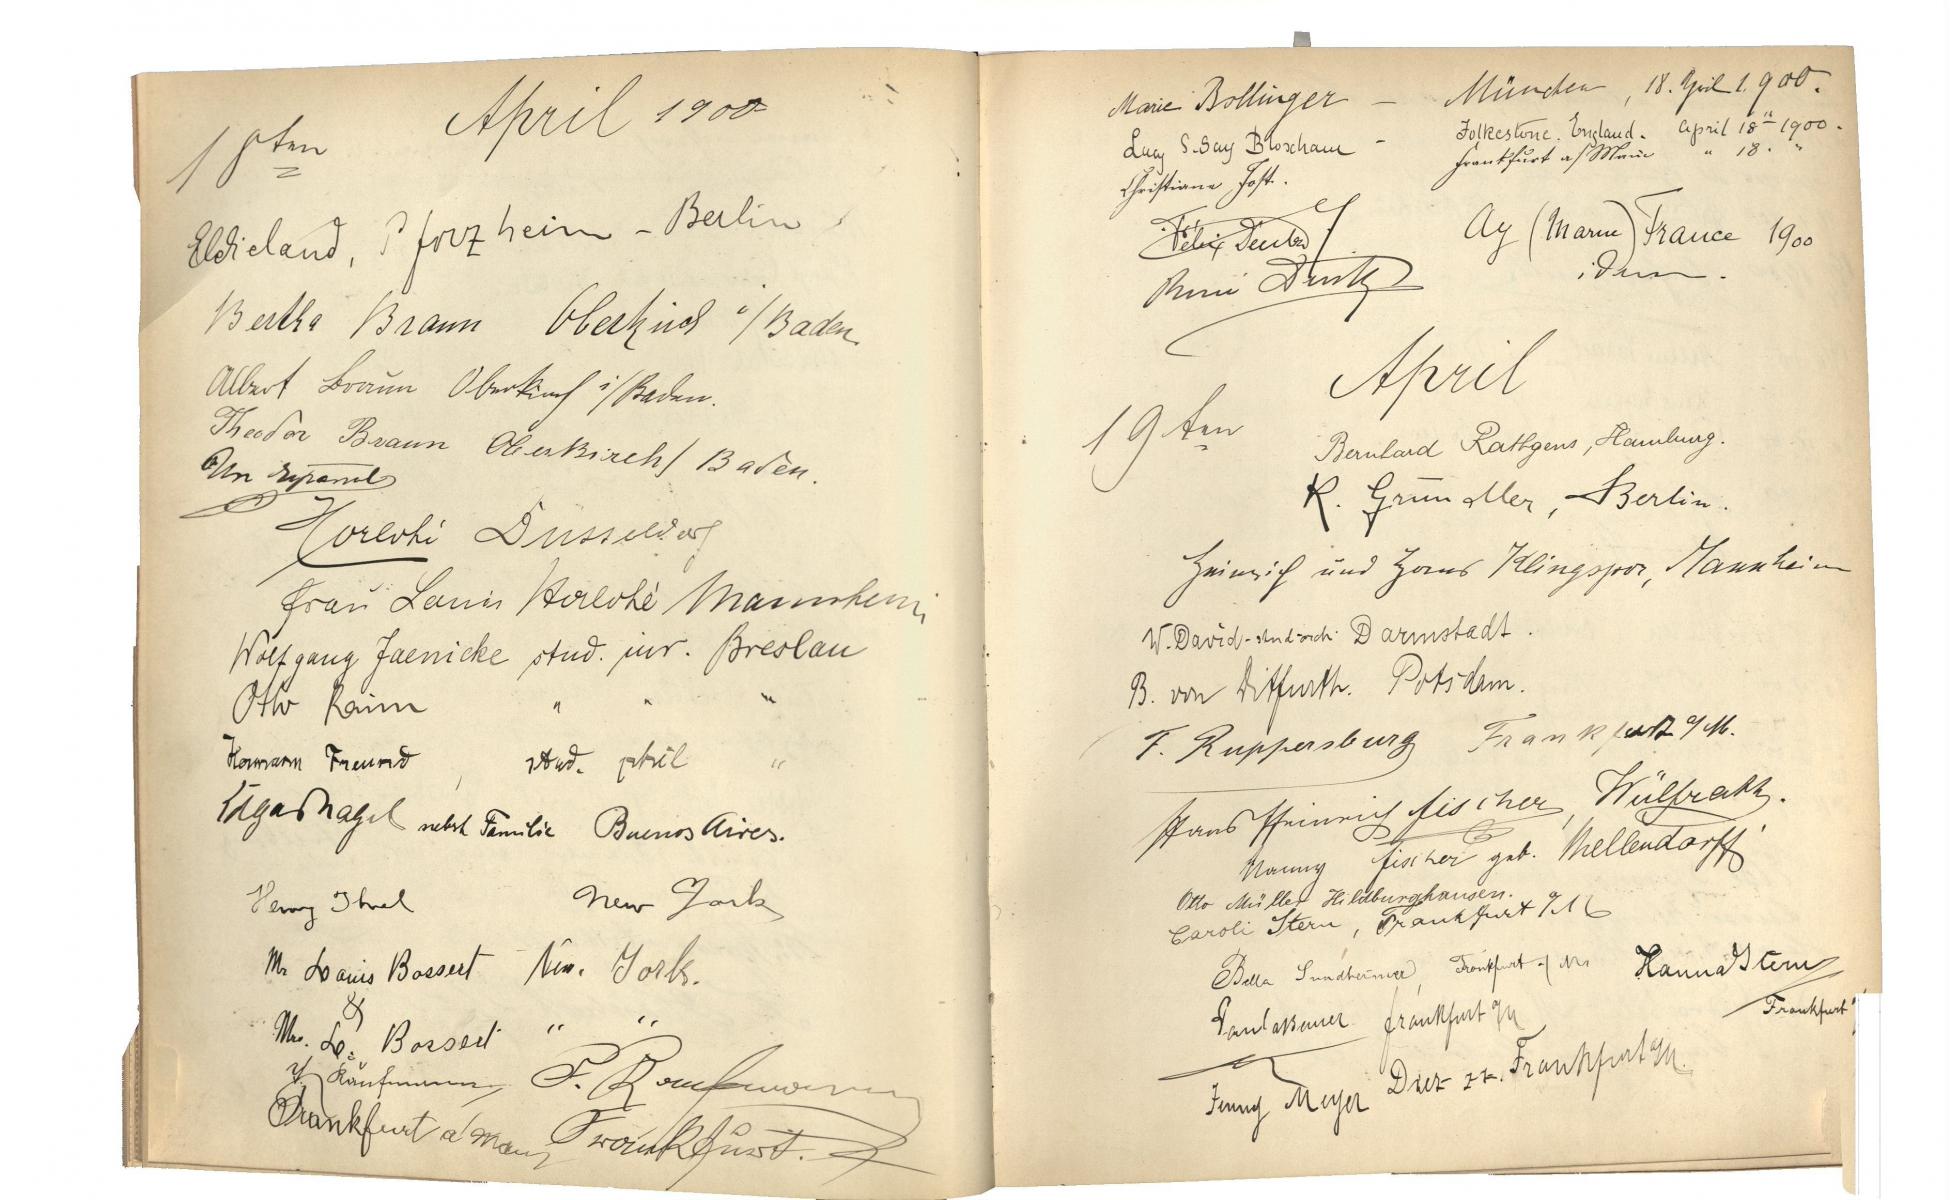 April 1900
18ten
Eldieland, Pforzheim - Berlin
Bertha Braun Oberkirch i/Baden
Albert Braun Oberkirch i/Baden.
Theodor Braun Oberkirch/Baden.
Un
Horlohé Düsseldorf
Frau Louis Horlohé Mannheim
Wolfgang Jaenicke stud. jur. Breslau
Otto Kaim " " "
Hermann Freund, stud. phil "
Edgar Nagel nebst Familie Buenos Aires.
Henry New York
Mr Louis Bossert New York.
&
Mrs. L. Bossert " "
Kaufmann F. Kaufmann
Frankfurt a/Main Frankfurt.
Marie Bollinger - München, 18. April 1.900.
Lucy S. Day Bloxham - Folkestone. England. April 18th 1900.
Christiane Jost. Frankfurt a/Main " 18. "
Félix Ay (Marne) France 1900
René idem.
April
19ten
Bernhard Rathgens, Hamburg.
K. Gründler, Berlin.
Heinrich und Hans Klingspor, Mannheim
W. David - stud. arch. Darmstadt.
B. von Ditfurth. Potsdam.
F. Ruppersburg Frankfurt a/M.
Hans Heinrich Fischer, Wülfrath.
Nanny Fischer geb. Mellendorff
Otto Müller Hildburghausen.
Caroli Stern, Frankfurt a/M
Bella Sundheimer, Frankfurt a/M Hanna Stern
Frankfurt
Frankfurt a/M
Jenny Meyer Diez zz. Frankfurt a/M.